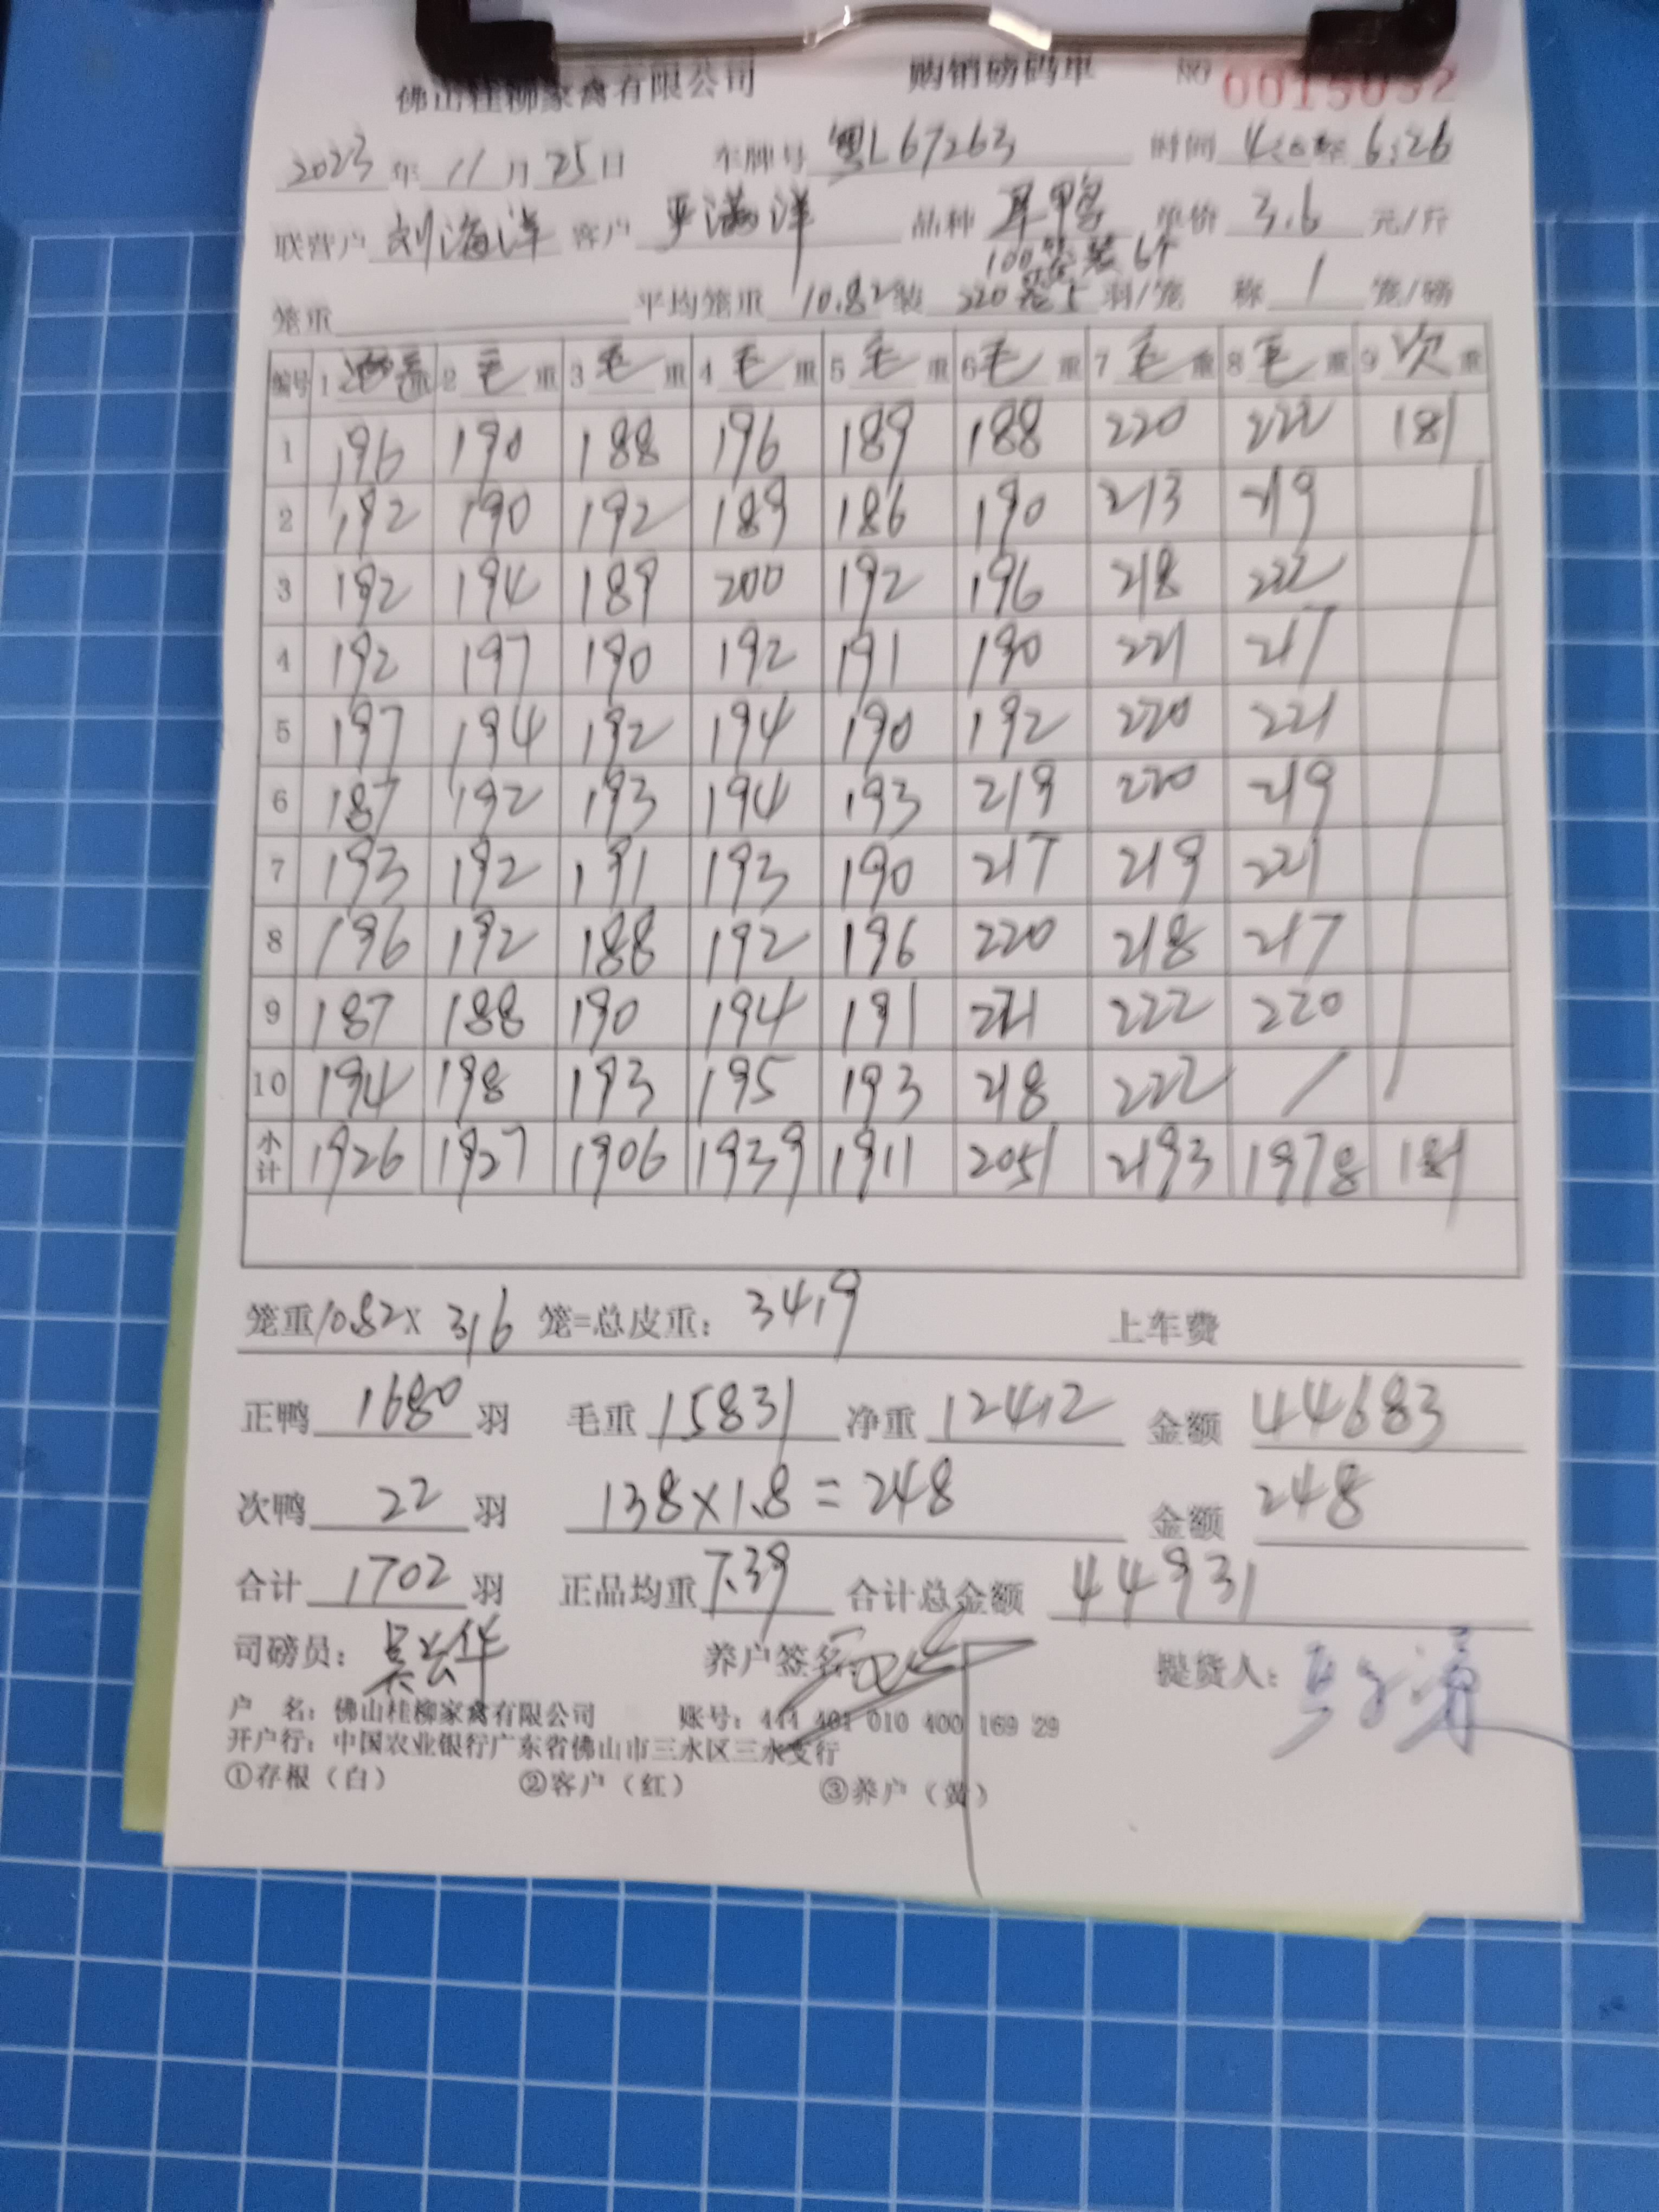 佛山桂柳家禽有限公司 购销磅码单 NO 0015032
2023 年 11 月 25 日 车牌号 粤L67263 时间 至 6:26
联营户 刘海洋 客户 品种 单价 3.6 元/斤
100 装 6个
笼重 平均笼重 10.82 装 220 5 羽/笼 称 1 笼/磅
编号 1 重 2 毛 重 3 毛 重 4 毛 重 5 毛 重 6 毛 重 7 毛 重 8 毛 重 9 次 重
1 196 190 188 196 189 188 220 222 181
2 192 190 192 189 186 190 213 219
3 192 194 189 200 192 196 218 222
4 192 197 190 192 191 190 221 217
5 197 194 192 194 190 192 220 221
6 187 192 193 194 193 219 220 219
7 193 192 191 193 190 217 219 221
8 196 192 188 192 196 220 218 217
9 187 188 190 194 191 221 222 220
10 194 198 193 195 193 218 222 /
小计 1926 1927 1906 1939 1911 2051 2193 1978 181
笼重 10.82 X 316 笼=总皮重: 3419 上车费
正鸭 1680 羽 毛重 15831 净重 12412 金额 44683
次鸭 22 羽 138×1.8=248 金额 248
合计 1702 羽 正品均重 7.39 合计总金额 44931
司磅员: 养户签名: 提货人:
户 名: 佛山桂柳家禽有限公司 账号: 444 401 010 400 169 29
开户行: 中国农业银行广东省佛山市三水区三水支行
①存根(白) ②客户(红) ③养户(黄)